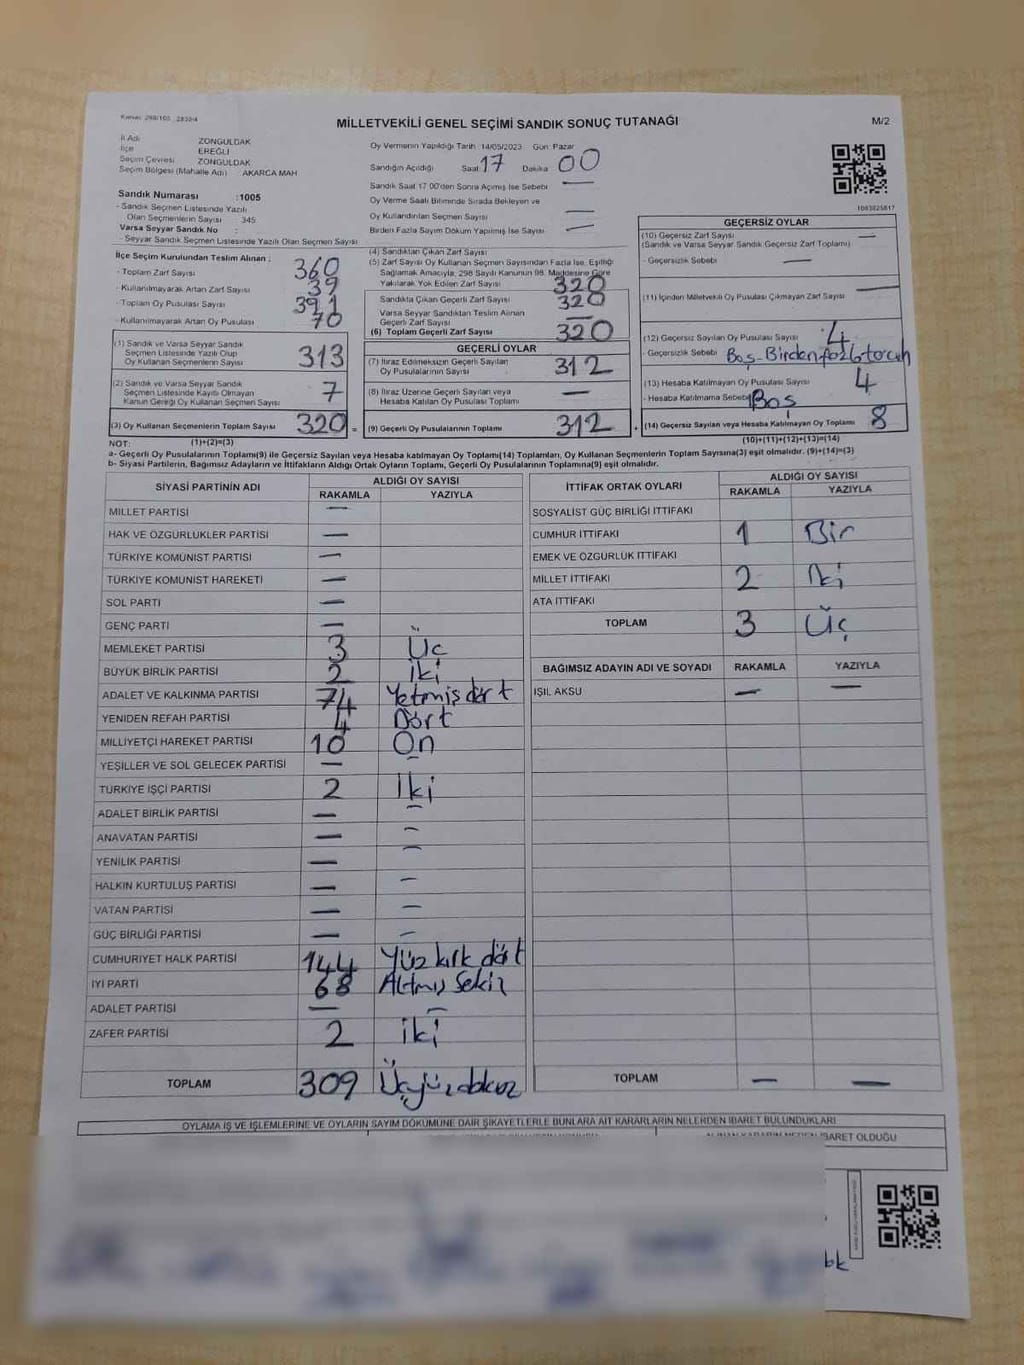 Kanun: 298/105 , 2839/4
MİLLETVEKİLİ GENEL SEÇİMİ SANDIK SONUÇ TUTANAĞI
M/2
İl Adı ZONGULDAK
İlçe EREĞLİ
Seçim Çevresi ZONGULDAK
Seçim Bölgesi (Mahalle Adı) AKARCA MAH
Sandık Numarası :1005
- Sandık Seçmen Listesinde Yazılı
Olan Seçmenlerin Sayısı 345
Varsa Seyyar Sandık No :
- Seyyar Sandık Seçmen Listesinde Yazılı Olan Seçmen Sayısı
Oy Vermenin Yapıldığı Tarih 14/05/2023 Gün: Pazar
Sandığın Açıldığı Saat 17 Dakika 00
Sandık Saat 17 00'den Sonra Açımış İse Sebebi —
Oy Verme Saati Bitiminde Sırada Bekleyen ve
Oy Kullandırılan Seçmen Sayısı —
Birden Fazla Sayım Döküm Yapılmış İse Sayısı —
1083825817
İlçe Seçim Kurulundan Teslim Alınan :
- Toplam Zarf Sayısı 360
- Kullanılmayarak Artan Zarf Sayısı 39
- Toplam Oy Pusulası Sayısı 391
- Kullanılmayarak Artan Oy Pusulası 70
(1) Sandık ve Varsa Seyyar Sandık
Seçmen Listesinde Yazılı Olup
Oy Kullanan Seçmenlerin Sayısı 313
(2) Sandık ve Varsa Seyyar Sandık
Seçmen Listesinde Kayıtlı Olmayan
Kanun Gereği Oy Kullanan Seçmen Sayısı 7
(3) Oy Kullanan Seçmenlerin Toplam Sayısı 320 =
(4) Sandıktan Çıkan Zarf Sayısı
(5) Zarf Sayısı Oy Kullanan Seçmen Sayısından Fazla İse, Eşitliği
Sağlamak Amacıyla, 298 Sayılı Kanunun 98. Maddesine Göre
Yakılarak Yok Edilen Zarf Sayısı 320
Sandıkta Çıkan Geçerli Zarf Sayısı 320
Varsa Seyyar Sandıktan Teslim Alınan
Geçerli Zarf Sayısı —
(6) Toplam Geçerli Zarf Sayısı 320
GEÇERLİ OYLAR
(7) İtiraz Edilmeksizin Geçerli Sayılan
Oy Pusulalarının Sayısı 312
(8) İtiraz Üzerine Geçerli Sayılan veya
Hesaba Katılan Oy Pusulası Toplamı —
(9) Geçerli Oy Pusulalarının Toplamı 312 +
GEÇERSİZ OYLAR
(10) Geçersiz Zarf Sayısı —
(Sandık ve Varsa Seyyar Sandık Geçersiz Zarf Toplamı)
- Geçersizlik Sebebi —
(11) İçinden Milletvekili Oy Pusulası Çıkmayan Zarf Sayısı —
(12) Geçersiz Sayılan Oy Pusulası Sayısı 4
- Geçersizlik Sebebi Boş-Birden fazla tercih
(13) Hesaba Katılmayan Oy Pusulası Sayısı 4
- Hesaba Katılmama Sebebi Boş
(14) Geçersiz Sayılan veya Hesaba Katılmayan Oy Toplamı 8
NOT: (1)+(2)=(3) (10)+(11)+(12)+(13)=(14)
a- Geçerli Oy Pusulalarının Toplamı(9) ile Geçersiz Sayılan veya Hesaba katılmayan Oy Toplamı(14) Toplamları, Oy Kullanan Seçmenlerin Toplam Sayısına(3) eşit olmalıdır. (9)+(14)=(3)
b- Siyasi Partilerin, Bağımsız Adayların ve İttifakların Aldığı Ortak Oyların Toplamı, Geçerli Oy Pusulalarının Toplamına(9) eşit olmalıdır.
SİYASİ PARTİNİN ADI ALDIĞI OY SAYISI
RAKAMLA YAZIYLA
MİLLET PARTİSİ —
HAK VE ÖZGÜRLÜKLER PARTİSİ —
TÜRKİYE KOMÜNİST PARTİSİ —
TÜRKİYE KOMÜNİST HAREKETİ —
SOL PARTİ —
GENÇ PARTİ —
MEMLEKET PARTİSİ 3 Üç
BÜYÜK BİRLİK PARTİSİ 2 İki
ADALET VE KALKINMA PARTİSİ 74 Yetmiş dört
YENİDEN REFAH PARTİSİ 4 Dört
MİLLİYETÇİ HAREKET PARTİSİ 10 On
YEŞİLLER VE SOL GELECEK PARTİSİ — —
TÜRKİYE İŞÇİ PARTİSİ 2 İki
ADALET BİRLİK PARTİSİ — —
ANAVATAN PARTİSİ — —
YENİLİK PARTİSİ — —
HALKIN KURTULUŞ PARTİSİ — —
VATAN PARTİSİ — —
GÜÇ BİRLİĞİ PARTİSİ — —
CUMHURİYET HALK PARTİSİ 144 Yüz kırk dört
İYİ PARTİ 68 Altmış Sekiz
ADALET PARTİSİ — —
ZAFER PARTİSİ 2 iki
TOPLAM 309 Üçyüzdokuz
İTTİFAK ORTAK OYLARI ALDIĞI OY SAYISI
RAKAMLA YAZIYLA
SOSYALİST GÜÇ BİRLİĞİ İTTİFAKI
CUMHUR İTTİFAKI 1 Bir
EMEK VE ÖZGÜRLÜK İTTİFAKI
MİLLET İTTİFAKI 2 İki
ATA İTTİFAKI
TOPLAM 3 Üç
BAĞIMSIZ ADAYIN ADI VE SOYADI RAKAMLA YAZIYLA
IŞIL AKSU — —
TOPLAM — —
OYLAMA İŞ VE İŞLEMLERİNE VE OYLARIN SAYIM DÖKÜMÜNE DAİR ŞİKAYETLERLE BUNLARA AİT KARARLARIN NELERDEN İBARET BULUNDUKLARI
İBARET OLDUĞU